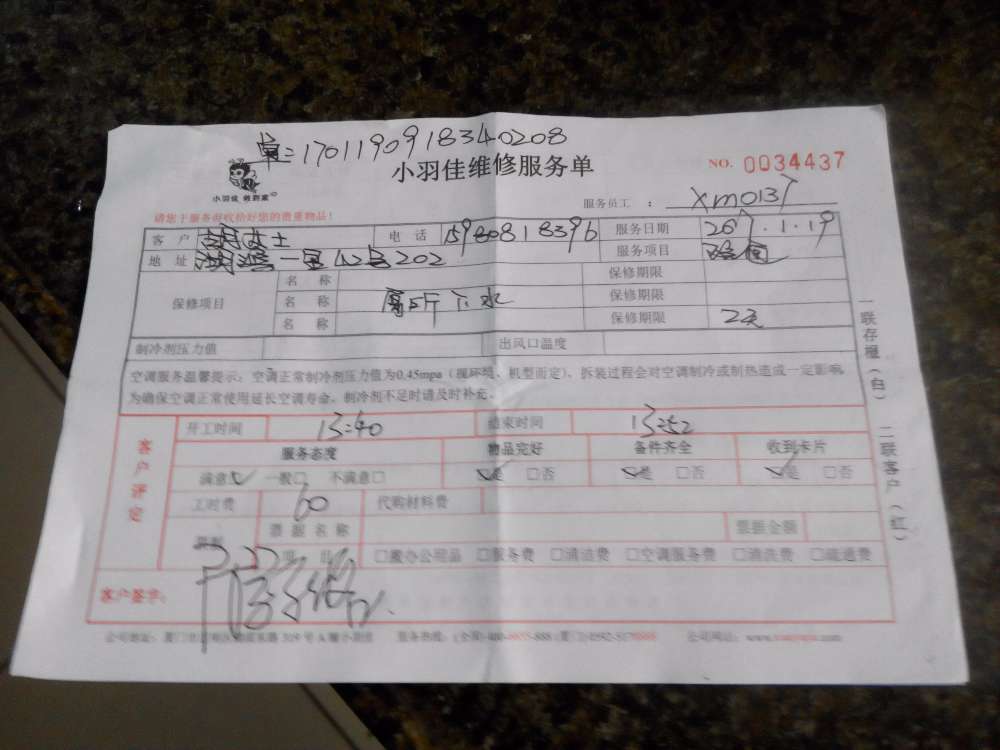 单:170119091834-0208
小羽佳维修服务单
NO. 0034437
小羽佳 做到家
服务员工 : XM0137
请您于服务前收拾好您的贵重物品!
客 户 女士 电 话 15980818396 服务日期 2017.1.19
地 址 一里42号202 服务项目
保修项目
名 称 保修期限
名 称 厕所下水 保修期限
名 称 保修期限 2天
制冷剂压力值 出风口温度
空调服务温馨提示:空调正常制冷剂压力值为0.45mpa(视环境、机型而定)、拆装过程会对空调制冷或制热造成一定影响,
为确保空调正常使用延长空调寿命,制冷剂不足时请及时补充。
客户评定
开工时间 13:40 结束时间 13:52
服务态度 物品完好 备件齐全 收到卡片
满意☑ 一般□ 不满意□ ☑是 □否 ☑是 □否 ☑是 □否
工时费 60 代购材料费
票据 票据名称 票据金额
项 目 □办公用品 □服务费 □清洁费 □空调服务费 □清洗费 □疏通费
客户签字:
一联存根(白) 二联客户(红)
公司地址: 服务热线: 公司网址: